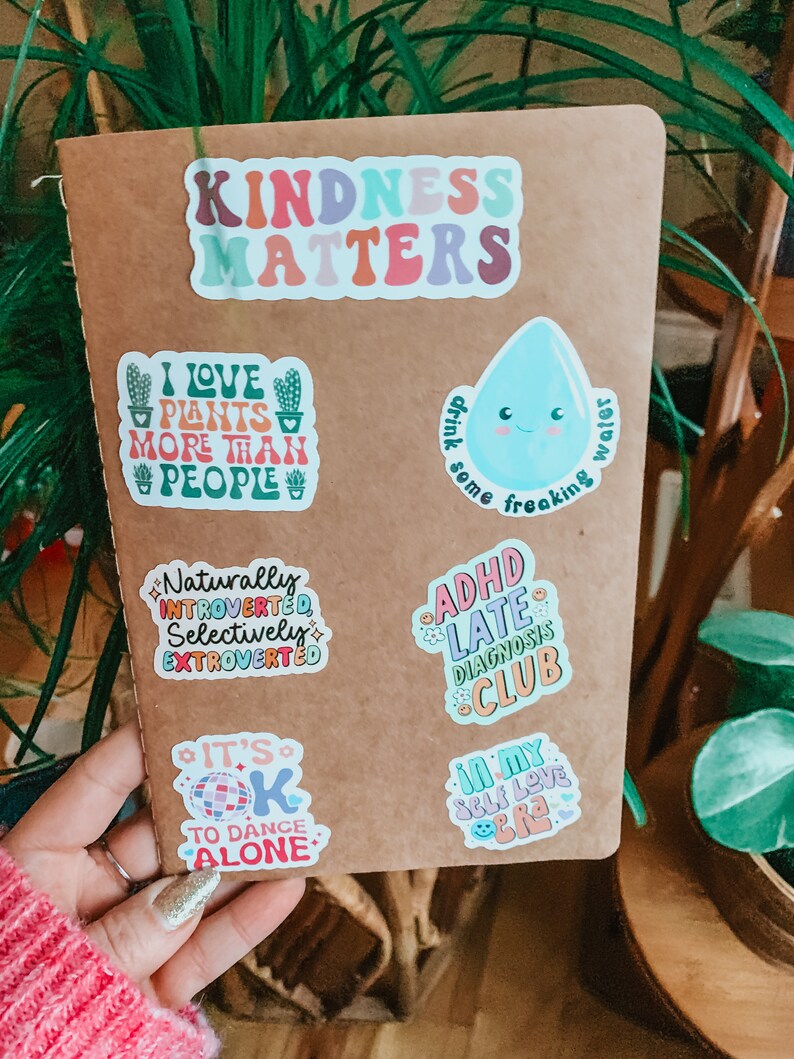 KINDNESS
MATTERS
I LOVE
PLANTS
MORE THAN
PEOPLE
drink some freaking water
Naturally
INTROVERTED,
Selectively
EXTROVERTED
ADHD
LATE
DIAGNOSIS
CLUB
IT'S
OK
TO DANCE
ALONE
in my
SELF LOVE
era